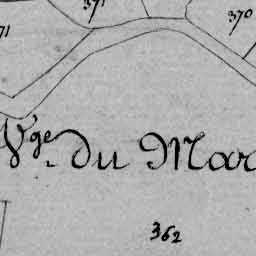 371
370
71
Vge du Mar
362